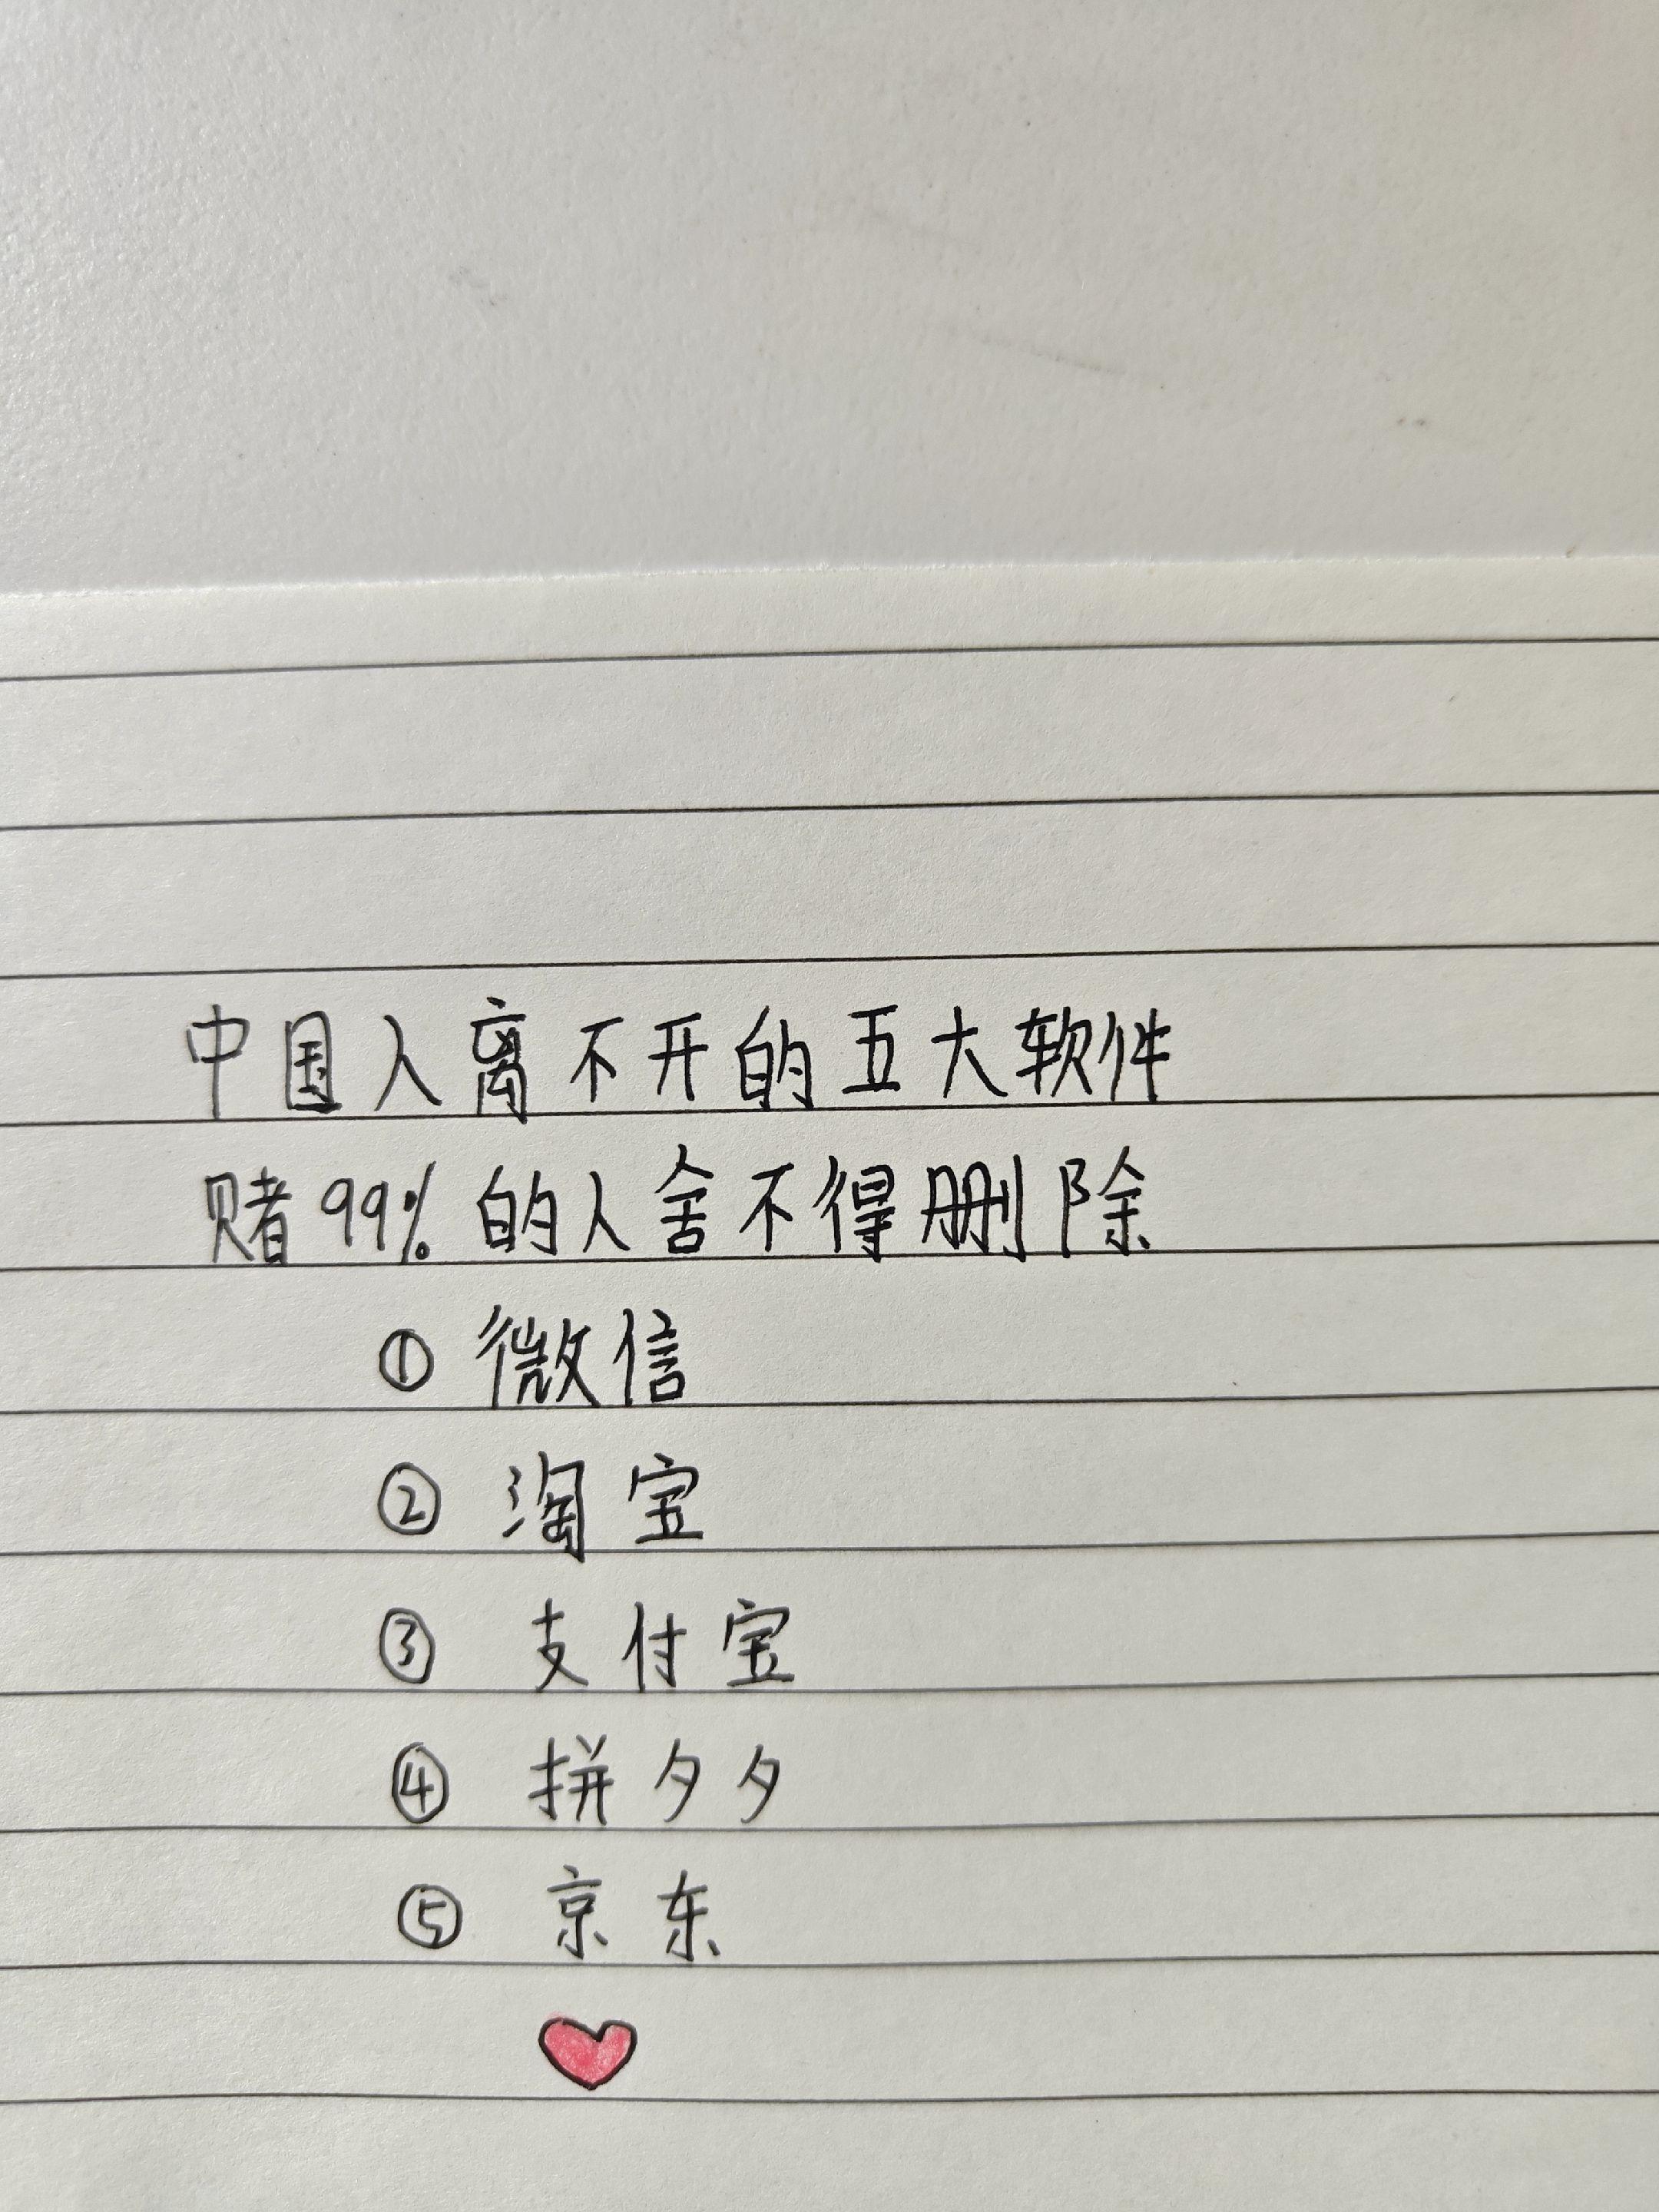 中国人离不开的五大软件
赌99%的人舍不得删除
① 微信
② 淘宝
③ 支付宝
④ 拼夕夕
⑤ 京东